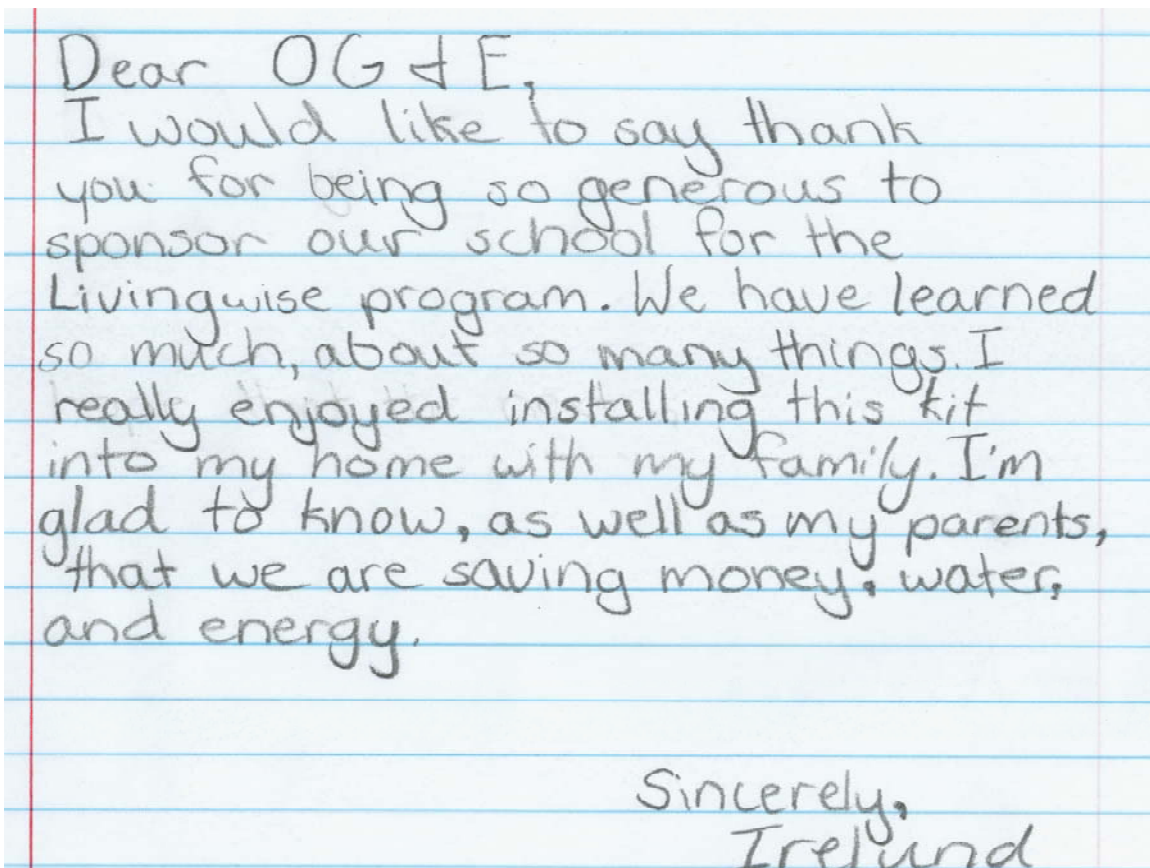 Dear OG&E,
I would like to say thank
you for being so generous to
sponsor our school for the
Livingwise program. We have learned
so much, about so many things. I
really enjoyed installing this kit
into my home with my family. I'm
glad to know, as well as my parents,
that we are saving money, water,
and energy.
Sincerely,
Ireland